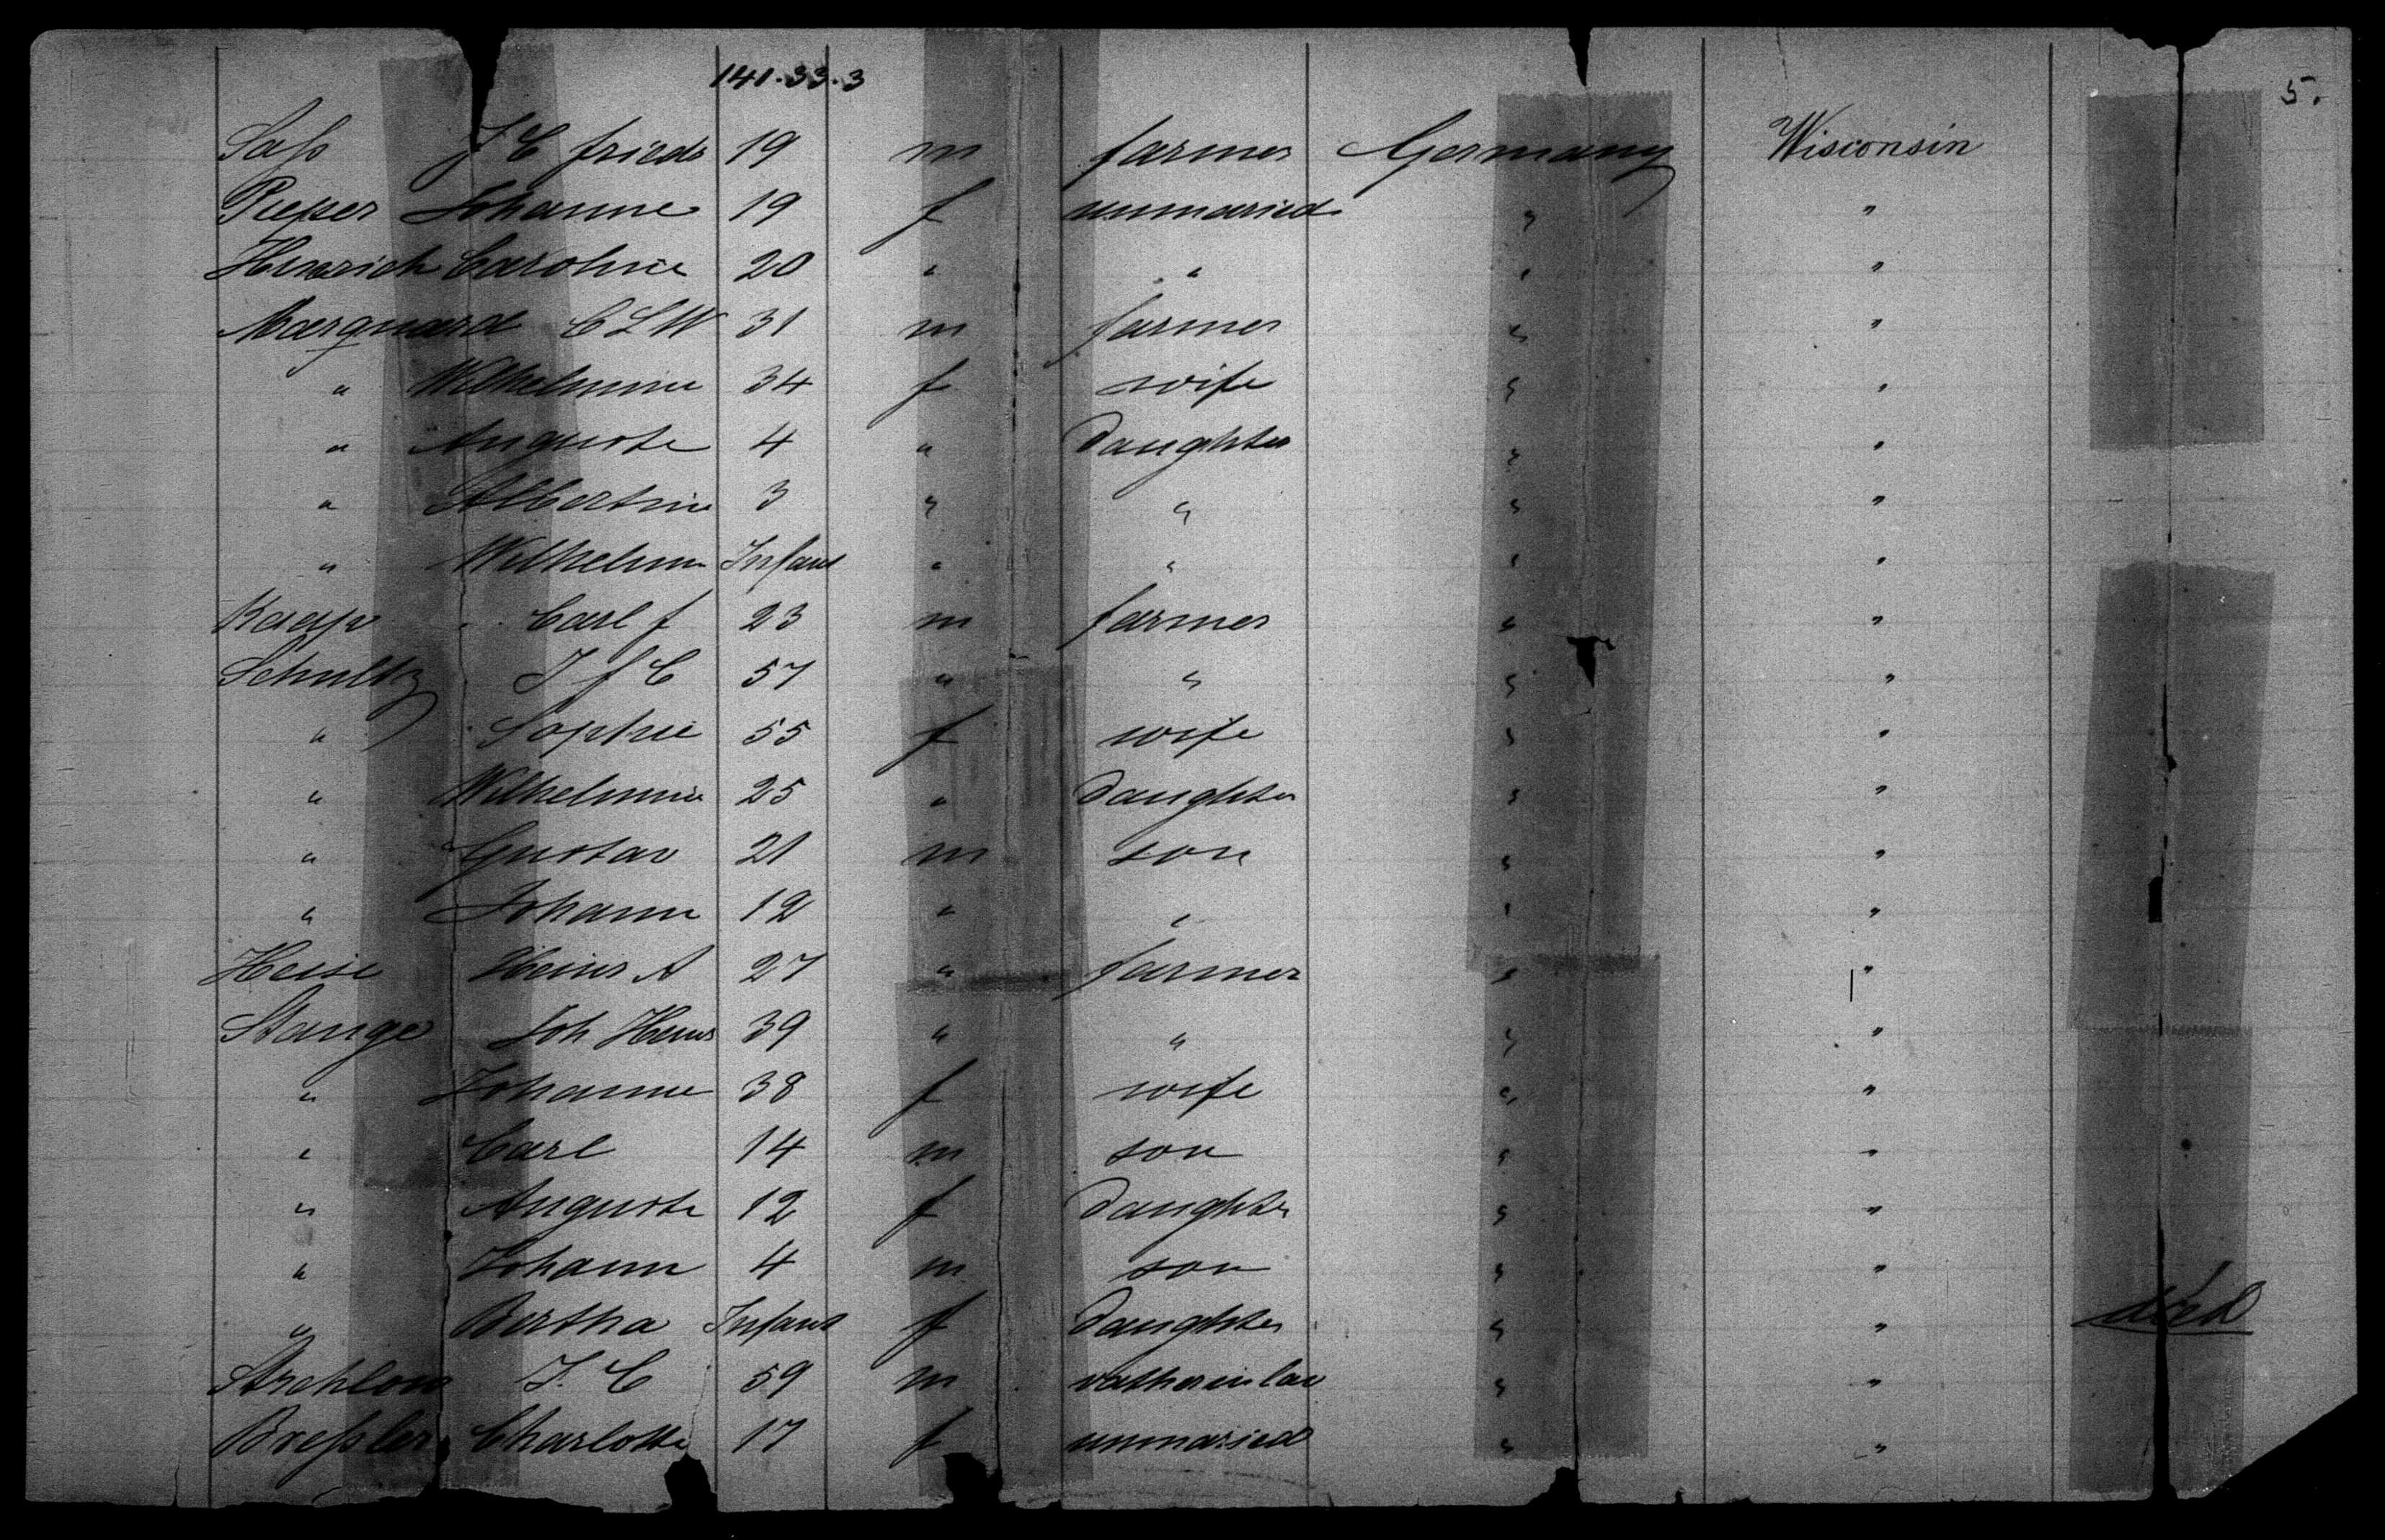 141.33.3
5.
Saſs J C friedr 19 m farmer Germany Wisconsin
Pieper Johanne 19 f unmaried " "
Henrich Caroline 20 " " " "
Marquard C L W 31 m farmer " "
" Wilhelmine 34 f wife " "
" Auguste 4 " Daughter " "
" Albertine 3 " " " "
" Wilhelmine Infant " " " "
Kaap Carl f 23 m farmer " "
Schultz J f C 57 " " " "
" Sophie 55 f wife " "
" Wilhelmine 25 " Daughter " "
" Gustav 21 m son " "
" Johann 12 " " " "
Heise Heinr A 27 " farmer " "
Stange Joh Heinr 39 " " " "
" Johanne 38 f wife " "
" Carl 14 m son " "
" Auguste 12 f Daughter " "
" Johann 4 m son " "
" Bertha Infant f Daughter " " died
Strehlow J. C 59 m vatherinlaw " "
Breſsler Charlotte 17 f unmaried " "